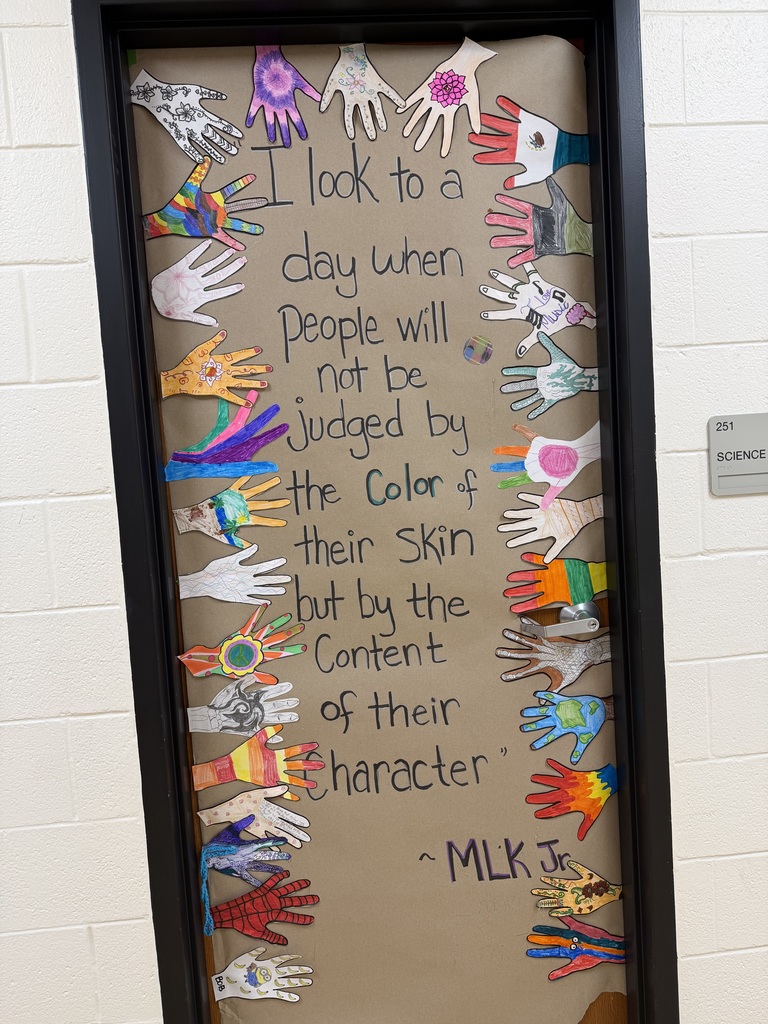 I look to a
day when
people will
not be
judged by
the Color of
their Skin
but by the
Content
of their
Character"
~ MLK Jr
I Love
Music
BOB
251
SCIENCE